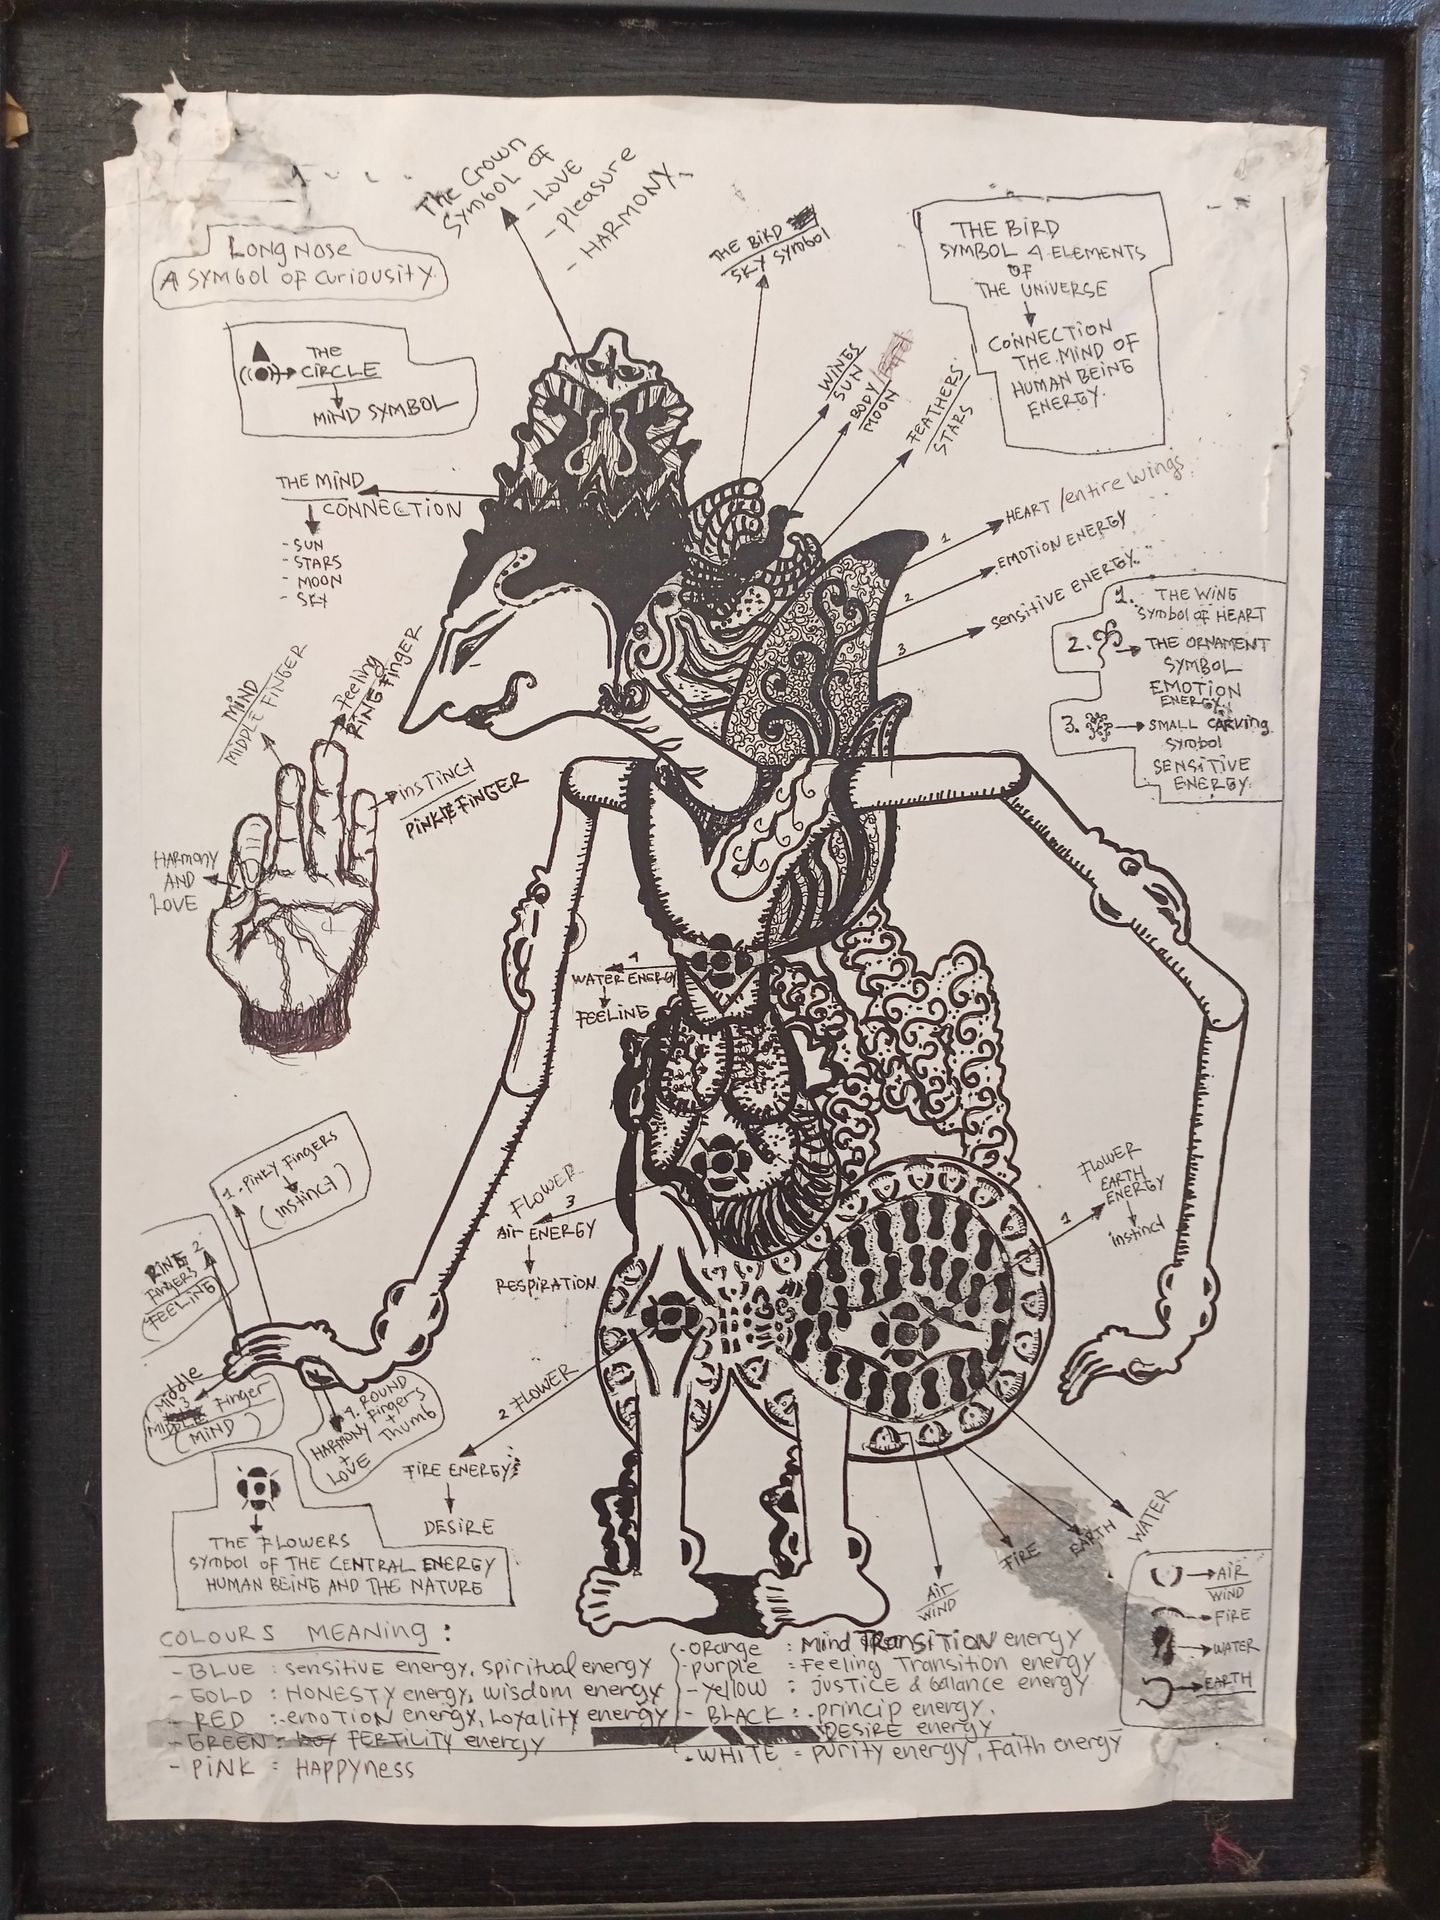 The Crown
Symbol of
- LOVE
- Pleasure
- HARMONY,
LONG NOSE
A SYMBOL OF CURIOUSITY.
THE BIRD
SKY Symbol
THE BIRD
SYMBOL 4 ELEMENTS
OF
THE UNIVERSE
CONNECTION
THE MIND OF
HUMAN BEING
ENERGY.
THE
CIRCLE
MIND SYMBOL
WINGS
SUN
BODY
MOON
FEATHERS
STARS
THE MIND
CONNECTION
- SUN
- STARS
- MOON
- SKY
1 HEART /entire wings
2 EMOTION ENERGY
3 SENSITIVE ENERGY.
1. THE WING
Symbol OF HEART
2. THE ORNAMENT
SYMBOL
EMOTION
ENERGY.
3. SMALL CARVING
Symbol
SENSITIVE
ENERGY.
MIND
MIDDLE FINGER
Feeling
RING FINGER
instinct
PINKIE FINGER
HARMONY
AND
LOVE
1
WATER ENERGY
FEELING
1. PINKY FINGERS
(instinct)
RING 2
FINGERS
(FEELING)
Middle
3
MIDDLE Finger
(MIND)
4. ROUND
Fingers
+
Thumb
HARMONY
+
LOVE
FLOWER
3
Air ENERGY
RESPIRATION
FLOWER
EARTH
ENERGY
1
instinct
2 FLOWER
FIRE ENERGY
DESIRE
THE FLOWERS
Symbol OF THE CENTRAL ENERGY
HUMAN BEING AND THE NATURE
Air
WIND
FIRE
EARTH
WATER
AIR
WIND
FIRE
WATER
EARTH
COLOURS MEANING :
- BLUE : sensitive energy, spiritual energy
- GOLD : HONESTY energy, wisdom energy
- RED : emotion energy, Loyality energy
- GREEN : FERTILITY energy
- PINK = HAPPYNESS
- orange : Mind TRANSITION energy
- purple = Feeling Transition energy
- Yellow : JUSTICE & balance energy
- BLACK : princip energy,
DESIRE energy
- WHITE = purity energy, Faith energy